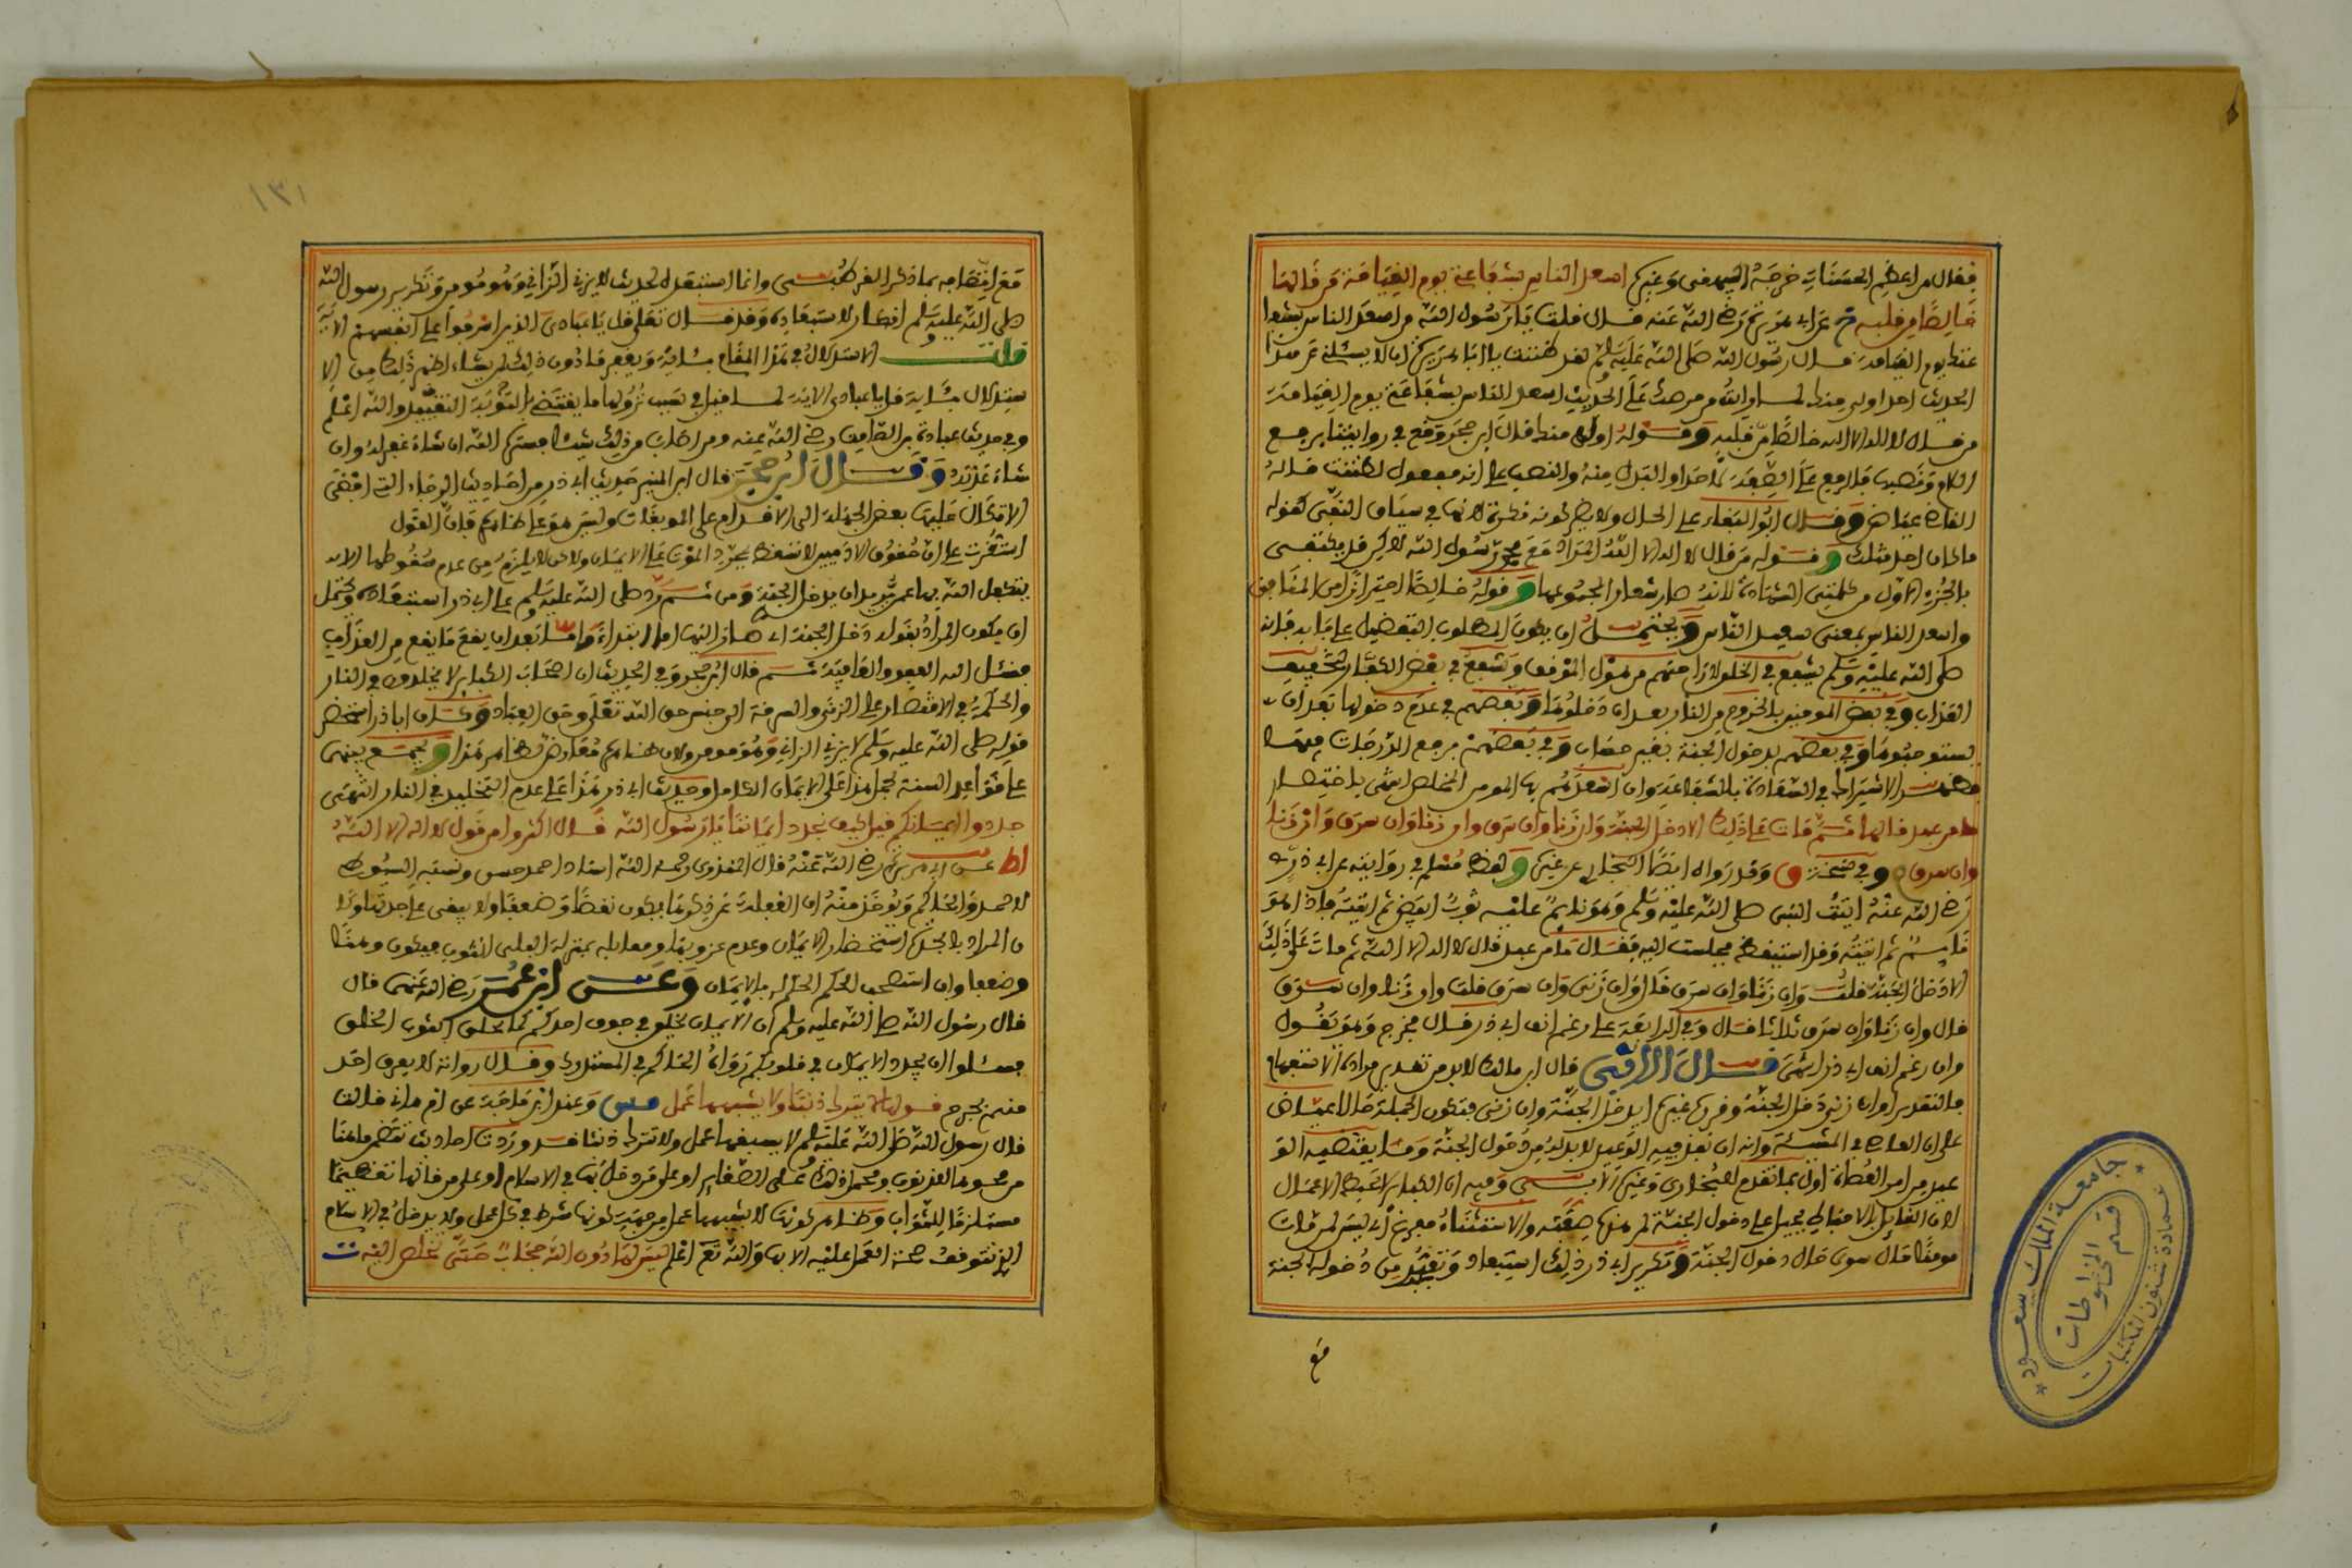 فقال من اعظم الحسنات خرجه البيهقى وغيره اسعد الناس بشفاعتى يوم القيامة من قالها
خالصا من قلبه خ عن ابى هريرة رضى الله عنه قال قلت يا رسول الله من اسعد الناس بشفاعتك
يوم القيامة قال رسول الله صلى الله عليه وسلم لقد ظننت يا ابا هريرة ان لا يسئلنى عن هذا
الحديث احد اول منك لما رايت من حرصك على الحديث اسعد الناس بشفاعتى يوم القيامة
من قال لا اله الا الله خالصا من قلبه وقوله اول منك قال ابن حجر وقع فى روايتنا برفع
اللام ونصبها فالرفع على الصفة لاحد او البدل منه والنصب على انه مفعول لظننت قاله
القاضى عياض وقال ابو البقاء على الحال ولا يضر كونه نكرة لانها فى سياق النفى كقوله
ما كان احد مثلك وقوله من قال لا اله الا الله المراد مع محمد رسول الله لاكن قد يكتفى
بالجزء الاول من كلمتى الشهادة لانه صار شعارا لمجموعها وقوله خالصا احترازا من المنافق
واسعد الناس بمعنى سعيد الناس ويحتمل ان يكون المطلوب التفضيل على بابه فانه
صلى الله عليه وسلم يشفع فى الخلق لاراحتهم من هول الموقف ويشفع فى بعض الكفار بتخفيف
العذاب وفى بعض المومنين بالخروج من النار بعد ان دخلوها وبعضهم فى عدم دخولها بعد ان
يستوجبوها وفى بعضهم بدخول الجنة بغير حساب وفى بعضهم برفع الدرجات فيها
الاشتراك فى السعادة بالشفاعة وان اسعدهم بها المومن المخلص انتهى باختصار
ما من عبد قالها ثم مات على ذلك الا دخل الجنة وان زنا وان سرق وان زنا وان سرق وان زنا
وان سرق وفى نسخة ق وقد رواه ايضا البخارى عن غيره ولفظ مسلم فى روايته عن ابى ذر
رضى الله عنه اتيت النبى صلى الله عليه وسلم وهو نايم عليه ثوب ابيض ثم اتيته فاذا هو
نايم ثم اتيته وقد استيقظ فجلست اليه فقال ما من عبد قال لا اله الا الله ثم مات على ذلك
الا دخل الجنة قلت وان زنا وان سرق قال وان زنى وان سرق قلت وان زنا وان سرق
قال وان زنا وان سرق ثلاثا قال وفى الرابعة على رغم انف ابى ذر قال فخرج وهو يقول
وان رغم انف ابى ذر انتهى قال الابى قال ابن مالك لا بد من تقدير مراده الاستفهام
بالتقدير او ان زنى دخل الجنة وفدره غيره ايدخل الجنة وان زنى فتكون الجملة حالا عياض
على ان العاصى فى المشيئة وانه ان نفذ فيه الوعيد لا بد له من دخول الجنة وما يقتضيه الو
عيد من امر العصاة اول بما تقدم للبخارى وغيره الابى وفيه ان الكباير لا تحبط الاعمال
لان القايل بالاحباط يحيل على دخول الجنة لمن هذه صفته والاستثناء مفرغ اى ليس لمن مات
مومنا حال سوى حال دخول الجنة وتكرير ابى ذر ذلك استبعاد وتعجب من دخوله الجنة
مع
١٣١
مع اتصافه بما ذكر القرطبى وانما استبعد لحديث لا يزنى الزانى وهو مومن وتكرير رسول الله
صلى الله عليه وسلم انكار لاستبعاده وقد قال تعلى قل يا عبادى الذين اسرفوا على انفسهم الاية
قلت الاستدلال فى هذا المقام بئاية ويغفر ما دون ذلك لمن يشاء اظهر ذلك من الا
ستدلال بئاية قل يا عبادى الاية لما قيل فى سبب نزولها ما يقتضى بالتوبة التقييد والله اعلم
وفى حديث عبادة بن الصامت رضى الله عنه ومن اصاب من ذلك شيئا فستره الله ان شاء غفر له وان
شاء عذبه وقال ابن حجر قال ابن المنير حديث ابى ذر من احاديث الرجاء التى افضى
الاتكال عليها ببعض الجهلة الى الاقدام على الموبقات وليس هو على ظاهره فان القول
استقرت على ان حقوق الادميين لا تسقط بمجرد الموت على الايمان ولاكن لا يلزم من عدم سقوطها الا ان
يتكفل الله بها عمن يريد ان يدخل الجنة ومن ثم رد صلى الله عليه وسلم على ابى ذر استبعاده ويحتمل
ان يكون المراد بقوله دخل الجنة اى صار اليها اما ابتداء واما بعد ان يقع ما يقع من العذاب
فنسئل الله العفو والعافية ثم قال ابن حجر وفى الحديث ان اصحاب الكباير لا يخلدون فى النار
والحكمة فى الاقتصار على الزنى والسرقة الى جنس حق الله تعلى وحق العباد وكان ابا ذر استحضر
قوله صلى الله عليه وسلم لا يزنى الزانى وهو مومن ولان ظاهره معارض لظاهر هذا ويجمع بينهما
على قواعد السنة بحمل هذا على الايمان الكامل وحديث ابى ذر هذا على عدم التخليد فى النار انتهى
جددوا ايمانكم قيل كيف نجدد ايماننا يا رسول الله قال اكثروا من قول لا اله الا الله
اط عن ابى هريرة رضى الله عنه قال المنذرى رحمه الله اسناد احمد حسن ونسبه السيوطى
لاحمد والحاكم ويوخذ منه ان الغفلة عن ذكرها يكون نقصا وضعفا ولا يبقى على جدته او
ن المراد بالجدة استحضار الايمان وعدم عزوبته ومقابله بمنزلة البلى للثوب فيكون وهنا
وضعفا وان استصحب الحكم الحكم بالايمان وعن ابن عمر رضى الله عنهما قال
قال رسول الله صلى الله عليه وسلم ان الايمان يخلق فى جوف احدكم كما يخلق الثوب الخلق
فسئلوا الله ان يجدد الايمان فى قلوبكم رواه الحاكم فى المستدرك وقال رواته لا يعرف احد
منهم بجرح قولها لا يترك ذنبا ولا يشبهها عمل وعند ابن ماجة عن ام هانئ قالت
قال رسول الله صلى الله عليه وسلم لا يسبقها عمل ولا تترك ذنبا قد وردت احاديث تتضمن ما هنا
من محوها الذنوب ومحمل ذلك على الصغاير او على من دخل بها فى الاسلام او على من قالها تعظيما
مستلزما للثواب وظاهر كونها لا يشبهها عمل من جهة كونها شرط فى كل عمل ولا يدخل فى الاسلام
الذى تتوقف صحة العمل عليه الا بها والله تع اعلم ليس لها دون الله حجاب حتى تخلص اليه ت
جامعة الملك سعود
عمادة شئون المكتبات
قسم المخطوطات